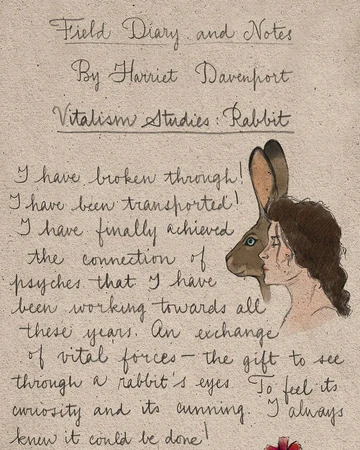 Field Diary and Notes
By Harriet Davenport
Vitalism Studies: Rabbit
I have broken through!
I have been transported!
I have finally achieved
the connection of
psyches that I have
been working towards all
these years. An exchange
of vital forces – the gift to see
through a rabbit's eyes. To feel its
curiosity and its cunning. I always
knew it could be done!